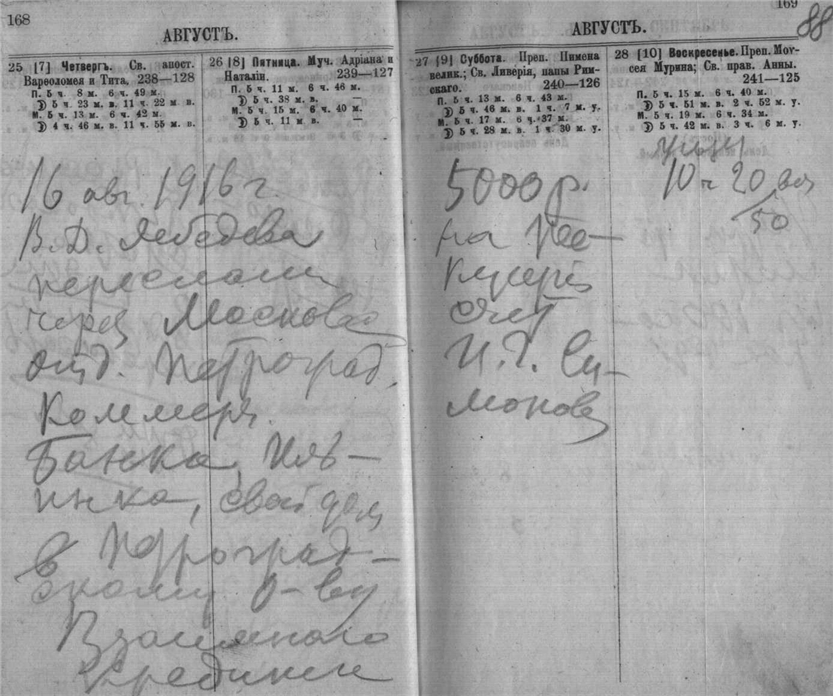 168
АВГУСТЪ.
25 [7] Четвергъ. Св. апост.
Вареоломея и Тита. 238—128
П. 5 ч. 8 м. 6 ч. 49 м.
5 ч. 23 м. в. 11 ч. 22 м. в.
М. 5 ч. 13 м. 6 ч. 42 м.
4 ч. 46 м. в. 11 ч. 55 м. в.
26 [8] Пятница. Муч. Адріана и
Наталіи. 239—127
П. 5 ч. 11 м. 6 ч. 46 м.
5 ч. 38 м. в. —
М. 5 ч. 15 м. 6 ч. 40 м.
5 ч. 11 м. в. —
16 авг. 1916 г.
В. Д. Лебедева
переслали
через Москов
отд. Петроград.
Коммерч.
Банка, Иль-
инка, свой дом
в Петроград-
скому О-ву
Взаимного
Кредита
169
88
АВГУСТЪ.
27 [9] Суббота. Преп. Пимена
велик.; Св. Ливерія, папы Рим-
скаго. 240—126
П. 5 ч. 13 м. 6 ч. 43 м.
5 ч. 46 м. в. 1 ч. 7 м. у.
М. 5 ч. 17 м. 6 ч. 37 м.
5 ч. 28 м. в. 1 ч. 30 м. у.
28 [10] Воскресенье. Преп. Мої-
сея Мурина; Св. прав. Анны.
241—125
П. 5 ч. 15 м. 6 ч. 40 м.
5 ч. 51 м. в. 2 ч. 52 м. у.
М. 5 ч. 19 м. 6 ч. 34 м.
5 ч. 42 м. в. 3 ч. 6 м. у.
5000 р.
на те-
кущий
счет
И. Г. Си-
монова
10 ч 20
50